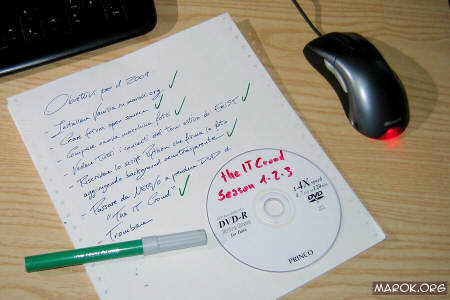 Obiettivi per il 2009
- Installare Vanilla su marok.org
- Creare forum open source
- Comprare nuova macchina foto
- Vedere tutti i concerti del Tour estivo di
- Riscrivere lo script Python che firma le foto
aggiungendo background semitrasparente
- Passare da a produrre DVD di
"The IT Crowd"
- Trombare
the IT Crowd
Season 1.2.3
1-4X speed
4.7 120min
DVD
DVD-R
for Data
PRINCO
Microsoft
MAROK.ORG